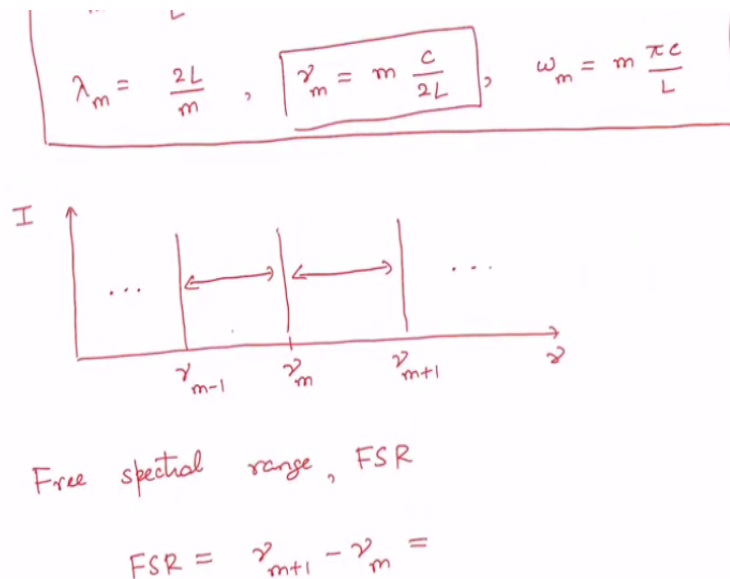 L
λ_m = 2L/m , ν_m = m c/2L , ω_m = m πc/L
I
... ...
ν_{m-1} ν_m ν_{m+1} ν
Free spectral range, FSR
FSR = ν_{m+1} - ν_m =